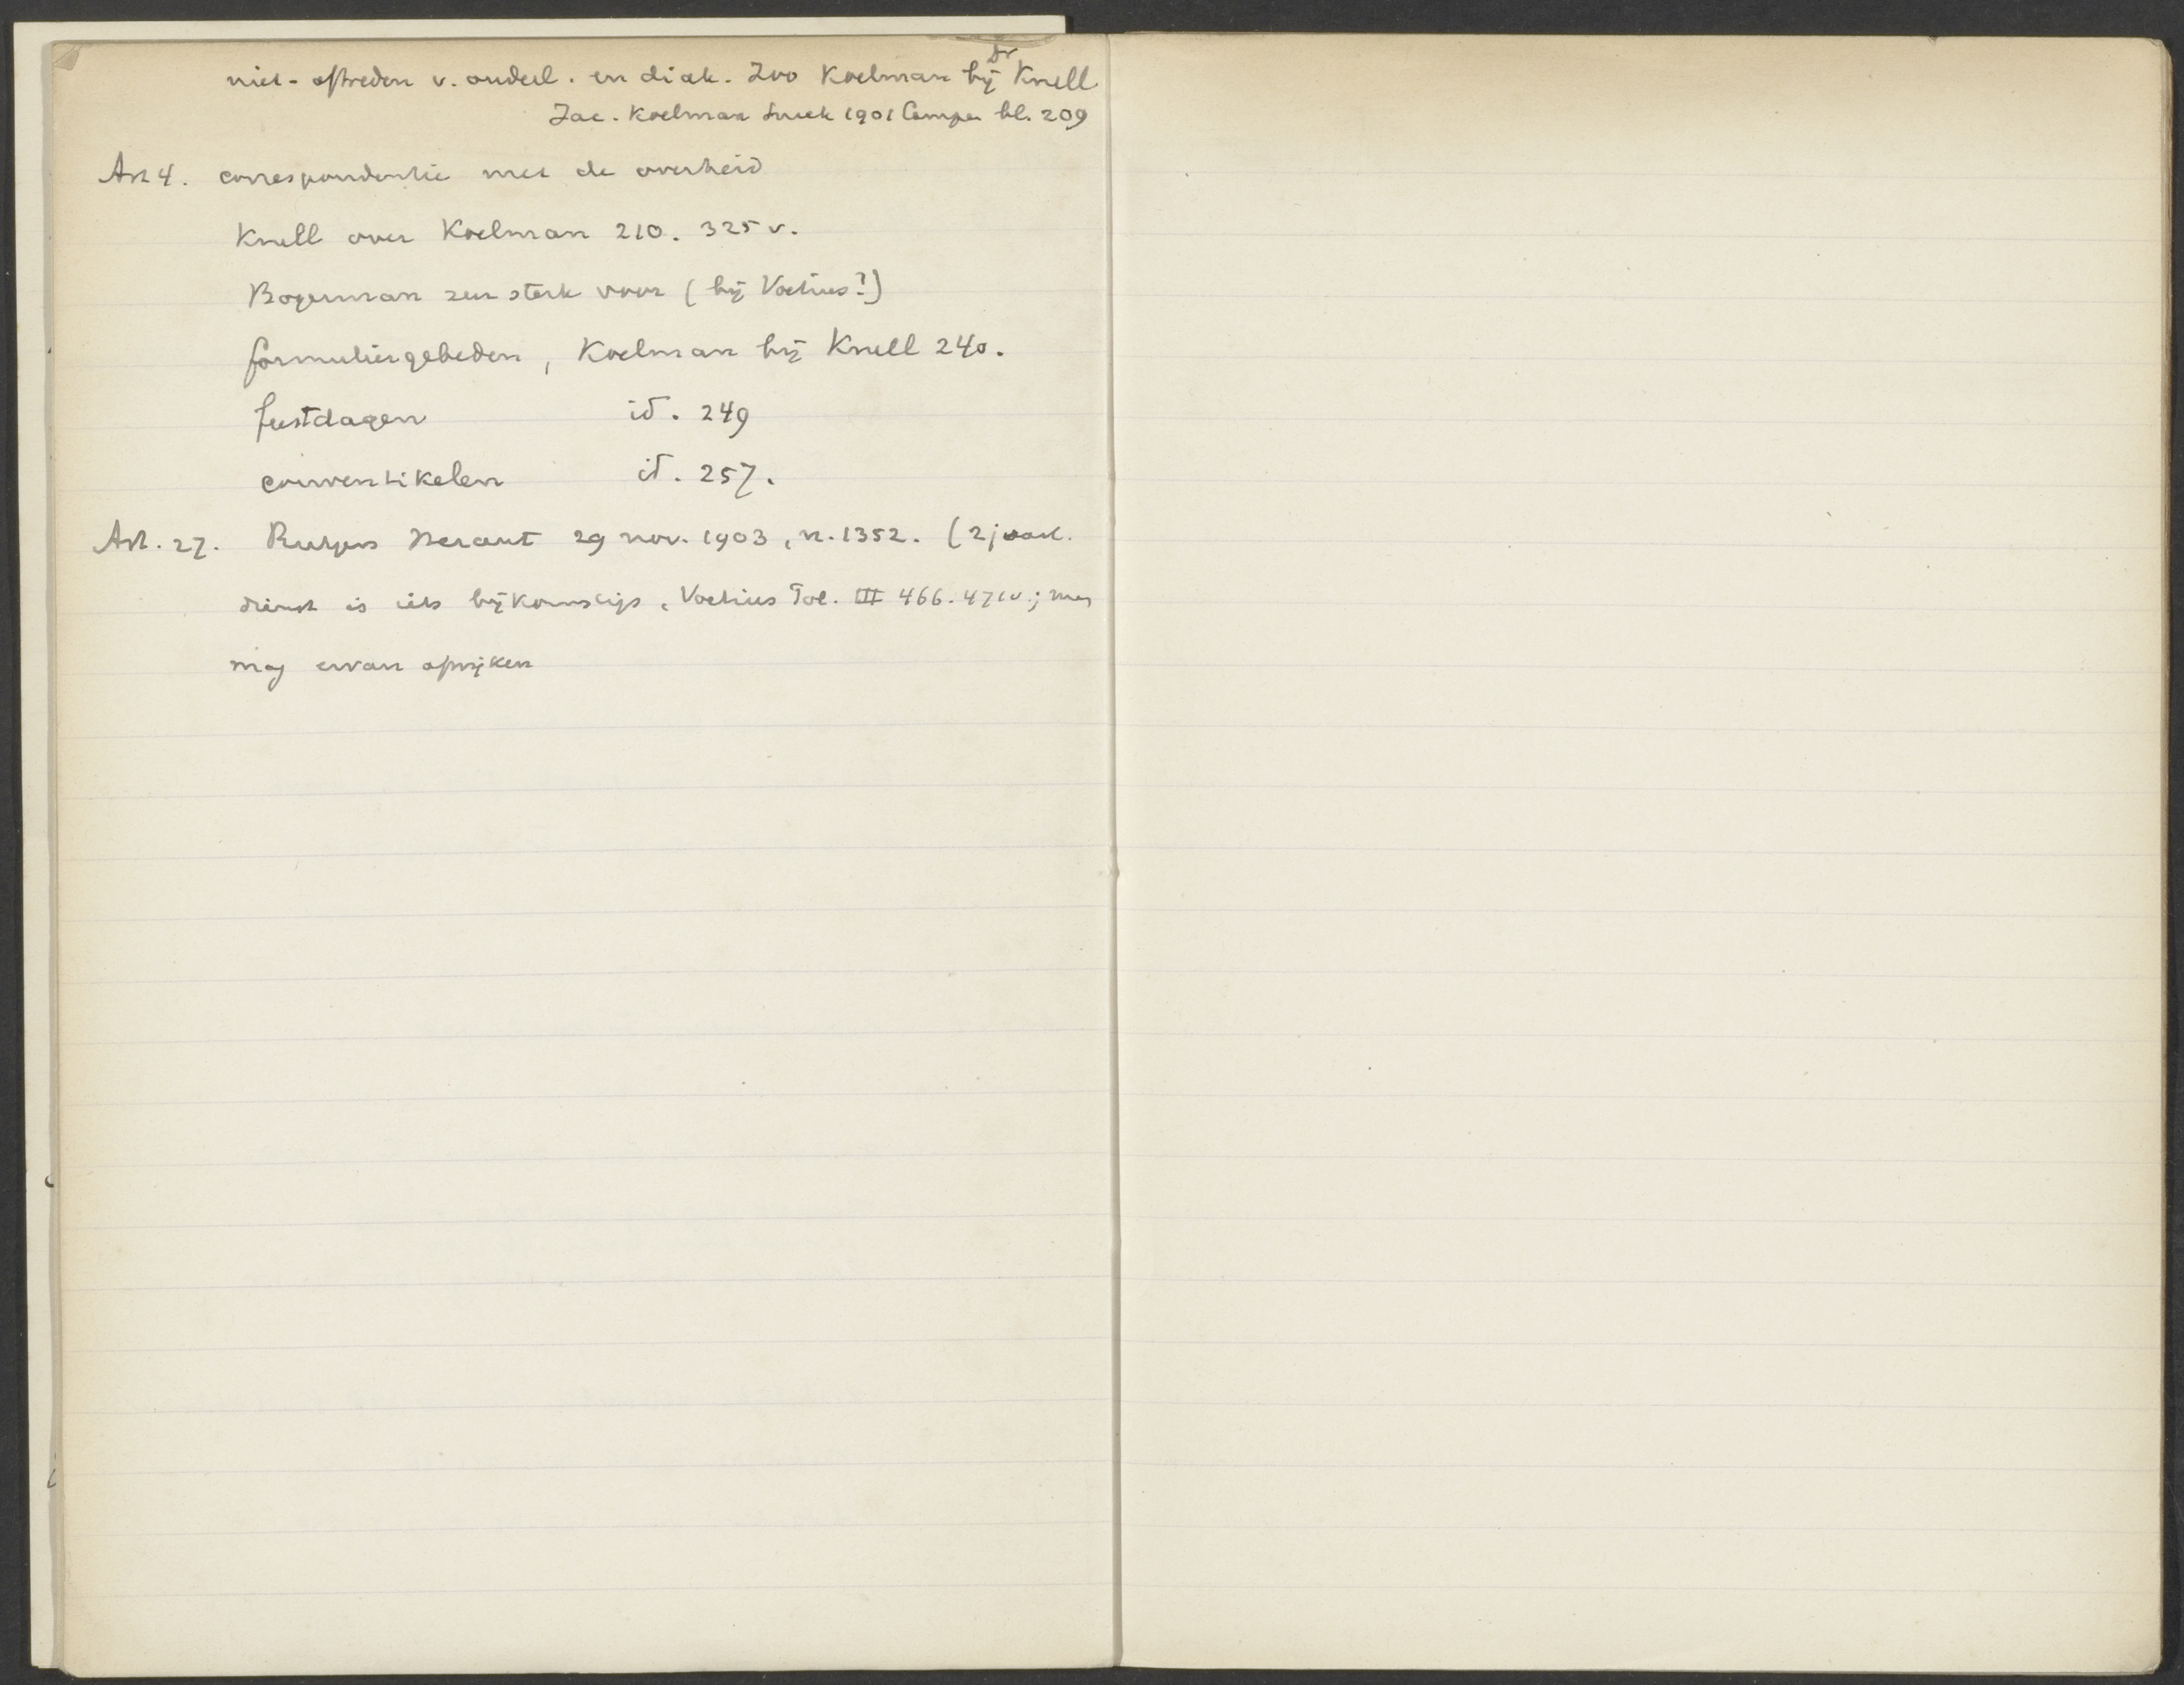 niet-aftreden v. ouderl. en diak. Zoo Koelman bij Dr Krull
Jac. Koelman Sneek 1901 Campen bl. 209
Art 4. correspondentie met de overheid
Krull over Koelman 210. 325 v.
Bogerman zeer sterk voor (bij Voetius?)
formuliergebeden, Koelman bij Krull 240.
feestdagen id. 249
conventikelen id. 257.
Art. 27. Rutgers Heraut 29 nov. 1903, n. 1352. (2 jaarl.
dienst is iets bijkomstigs, Voetius Pol. III 466. 471v.; men
mag ervan afwijken